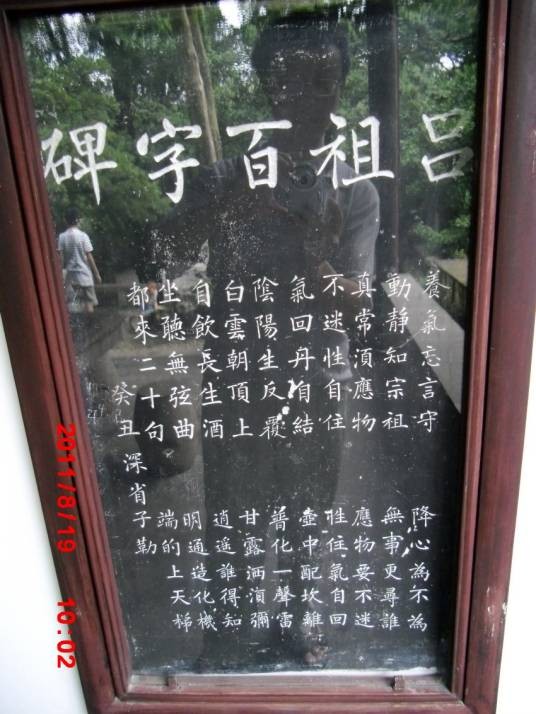 呂祖百字碑
養氣忘言守 降心為不為
動靜知宗祖 無事更尋誰
真常須應物 應物要不迷
不迷性自住 性住氣自回
氣回丹自結 壺中配坎離
陰陽生反覆 普化一聲雷
白雲朝頂上 甘露洒須彌
自飲長生酒 逍遥誰得知
坐聽無弦曲 明通造化機
都來二十句 端的上天梯
癸丑深省子勒
2011/8/19 10:02